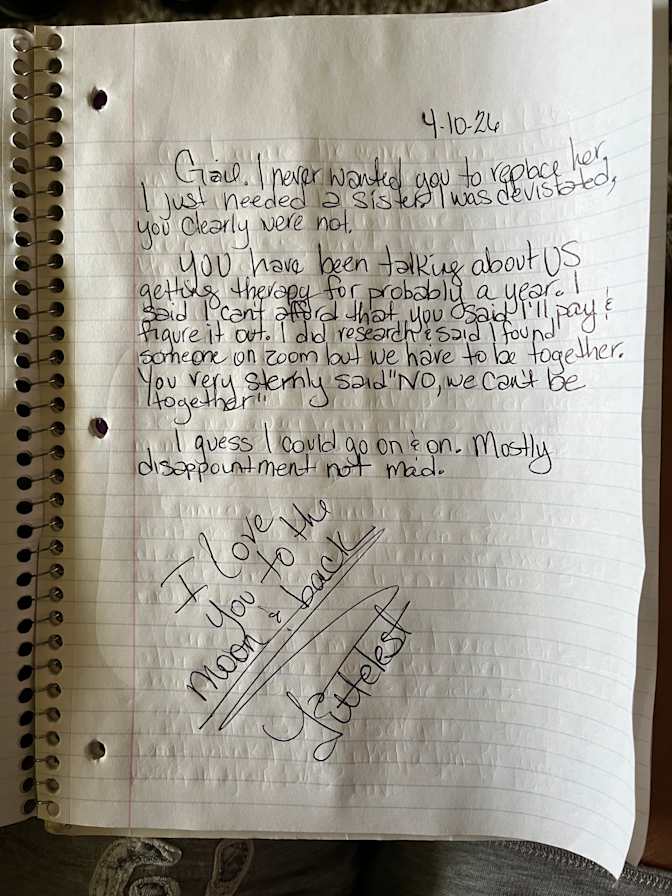 4-10-26
Gail. I never wanted you to replace her,
I just needed a sister I was devistated,
you clearly were not.
YOU have been talking about US
getting therapy for probably a year. I
said I cant afford that you said I'll pay &
figure it out. I did research & said I found
someone on zoom but we have to be together.
You very sternly said "NO, we can't be
together"
I guess I could go on & on. Mostly
disappountment not mad.
I love
you to the
moon & back
Littelest